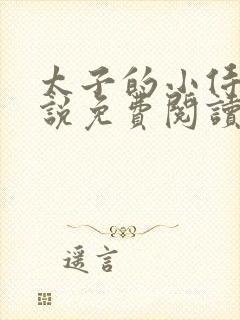 太子的小侍
說免費閱讀
遥言